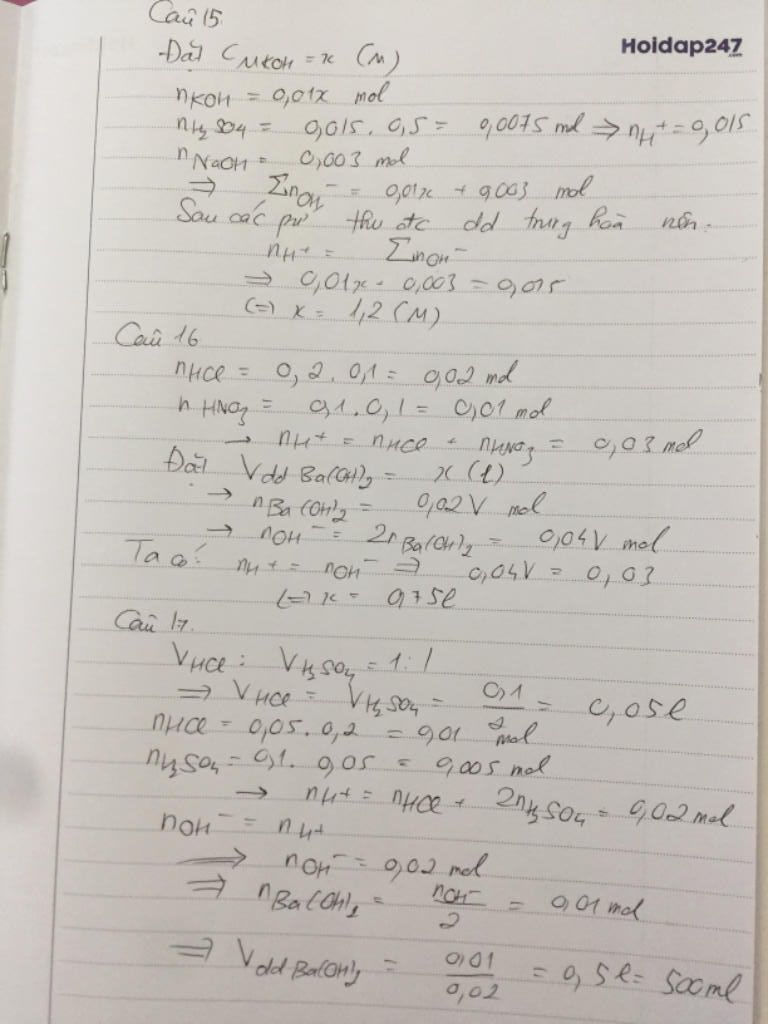 Câu 15.
Hoidap247
.com
Đặt CMKOH = x (M)
nKOH = 0,01x mol
nH2SO4 = 0,015 . 0,5 = 0,0075 mol ⇒ nH+ = 0,015
nNaOH = 0,003 mol
⇒ ΣnOH- = 0,01x + 0,003 mol
Sau các pư thu đc dd trung hoà nên.
nH+ = ΣnOH-
⇒ 0,01x + 0,003 = 0,015
(=) x = 1,2 (M)
Câu 16
nHCl = 0,2 . 0,1 = 0,02 mol
nHNO3 = 0,1 . 0,1 = 0,01 mol
→ nH+ = nHCl + nHNO3 = 0,03 mol
Đặt Vdd Ba(OH)2 = x (l)
→ nBa(OH)2 = 0,02V mol
→ nOH- = 2nBa(OH)2 = 0,04V mol
Ta có: nH+ = nOH- ⇒ 0,04V = 0,03
(=) x = 0,75l
Câu 17.
VHCl : VH2SO4 = 1:1
⇒ VHCl = VH2SO4 = 0,1/2 = 0,05l
nHCl = 0,05 . 0,2 = 0,01 mol
nH2SO4 = 0,1 . 0,05 = 0,005 mol
→ nH+ = nHCl + 2nH2SO4 = 0,02 mol
nOH- = nH+
⇒ nOH- = 0,02 mol
⇒ nBa(OH)2 = nOH-/2 = 0,01 mol
⇒ Vdd Ba(OH)2 = 0,01/0,02 = 0,5l = 500ml